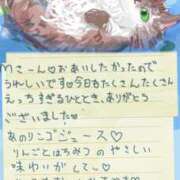 Mさーん♡おあいしたかったので
うれしいです♡今日もたくさんたくさん
えっちすぎるひととき、ありがとう
ございました♡
あのリンゴジュース♡
りんごとはちみつのやさしい
味わいがして〜♡